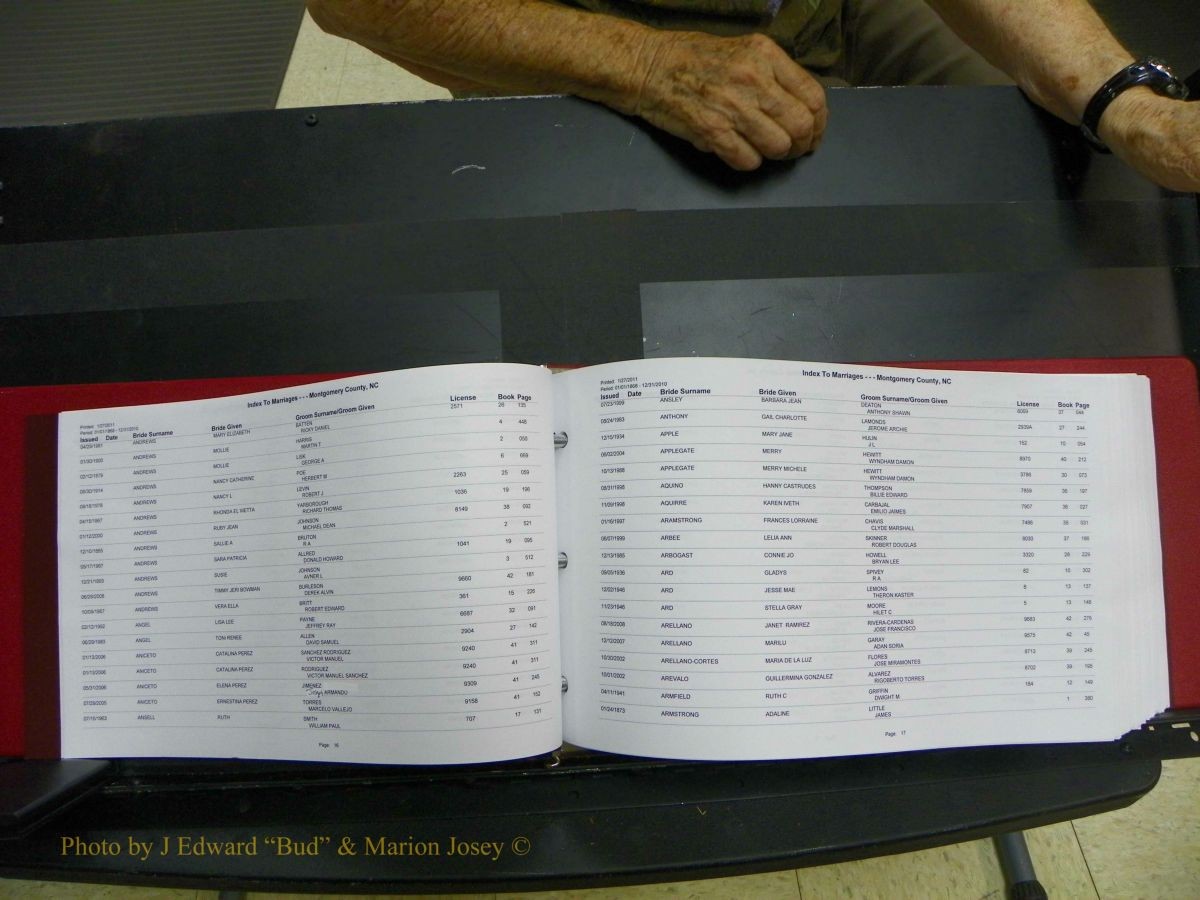 Index To Marriages - - - Montgomery County, NC
Printed: 1/27/2011
Period: 01/01/1868 - 12/31/2010
Issued Date Bride Surname Bride Given Groom Surname/Groom Given License Book Page
ANDREWS MARY ELIZABETH BATTEN 2571 26 135
RICKY DANIEL
ANDREWS MOLLIE HARRIS 4 448
MARTIN T
ANDREWS MOLLIE LISK 2 050
GEORGE A
ANDREWS NANCY CATHERINE POE 6 669
HERBERT W
ANDREWS NANCY L LEVIN 2263 25 059
ROBERT J
ANDREWS RHONDA ELWETTA YARBOROUGH 1036 19 196
RICHARD THOMAS
ANDREWS RUBY JEAN JOHNSON 8149 38 092
MICHAEL DEAN
ANDREWS SALLIE A BRUTON 2 521
R A
ANDREWS SARA PATRICIA ALLRED 1041 19 095
DONALD HOWARD
ANDREWS SUSIE JOHNSON 3 512
AVNER L
ANDREWS TIMMY JERI BOWMAN BURLESON 9660 42 181
DEREK ALVIN
ANDREWS VERA ELLA BRITT 361 15 226
ROBERT EDWARD
02/12/1992 ANGEL LISA LEE PAYNE 6687 32 091
JEFFREY RAY
06/29/1983 ANGEL TONI RENEE ALLEN 2904 27 142
DAVID SAMUEL
01/13/2006 ANICETO CATALINA PEREZ SANCHEZ RODRIGUEZ 9240 41 311
VICTOR MANUEL
01/13/2006 ANICETO CATALINA PEREZ RODRIGUEZ 9240 41 311
VICTOR MANUEL SANCHEZ
05/31/2006 ANICETO ELENA PEREZ JIMENEZ 9309 41 245
ARMANDU
07/29/2005 ANICETO ERNESTINA PEREZ TORRES 9158 41 152
MARCELO VALLEJO
07/16/1963 ANSELL RUTH SMITH 707 17 131
WILLIAM PAUL
Page: 16
Index To Marriages - - - Montgomery County, NC
Printed: 1/27/2011
Period: 01/01/1868 - 12/31/2010
Issued Date Bride Surname Bride Given Groom Surname/Groom Given License Book Page
07/23/1999 ANSLEY BARBARA JEAN DEATON 8069 37 044
ANTHONY SHAWN
08/24/1983 ANTHONY GAIL CHARLOTTE LAMONDS 2939A 27 244
JEROME ARCHIE
12/10/1934 APPLE MARY JANE HULIN 152 10 054
J L
06/02/2004 APPLEGATE MERRY HEWITT 8970 40 212
WYNDHAM DAMON
10/13/1988 APPLEGATE MERRY MICHELE HEWITT 3786 30 073
WYNDHAM DAMON
08/31/1998 AQUINO HANNY CASTRUDES THOMPSON 7859 35 197
BILLIE EDWARD
11/09/1998 AQUIRRE KAREN IVETH CARBAJAL 7907 36 027
EMILIO JAIMES
01/16/1997 ARAMSTRONG FRANCES LORRAINE CHAVIS 7486 35 031
CLYDE MARSHALL
06/07/1999 ARBEE LELIA ANN SKINNER 8030 37 166
ROBERT DOUGLAS
12/13/1985 ARBOGAST CONNIE JO HOWELL 3320 28 229
BRYAN LEE
09/05/1936 ARD GLADYS SPIVEY 82 10 302
R A
12/02/1946 ARD JESSE MAE LEMONS 8 13 137
THERON KASTER
11/23/1946 ARD STELLA GRAY MOORE 5 13 148
HILET C
08/18/2008 ARELLANO JANET RAMIREZ RIVERA-CARDENAS 9683 42 276
JOSE FRANCISCO
12/12/2007 ARELLANO MARILU GARAY 9575 42 45
ADAN SORIA
10/30/2002 ARELLANO-CORTES MARIA DE LA LUZ FLORES 8713 39 245
JOSE MIRAMONTES
10/01/2002 AREVALO GUILLERMINA GONZALEZ ALVAREZ 8702 39 195
RIGOBERTO TORRES
04/11/1941 ARMFIELD RUTH C GRIFFIN 184 12 149
DWIGHT M
01/24/1873 ARMSTRONG ADALINE LITTLE 1 380
JAMES
Page: 17
Photo by J Edward “Bud” & Marion Josey ©